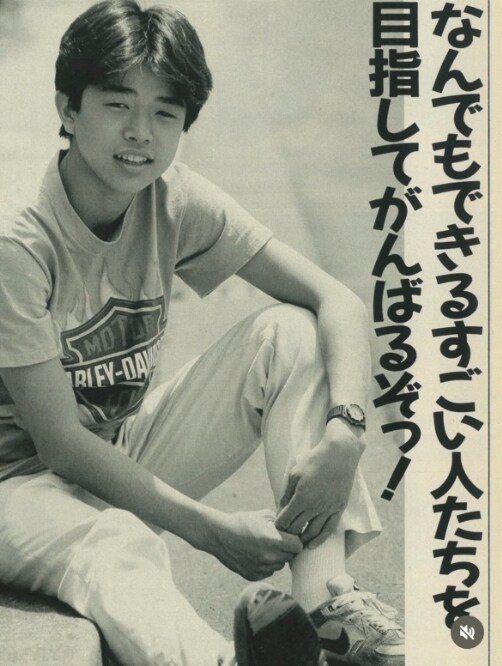 なんでもできるすごい人たちを
目指してがんばるぞっ!
MOTOR
HARLEY-DAVIDSON